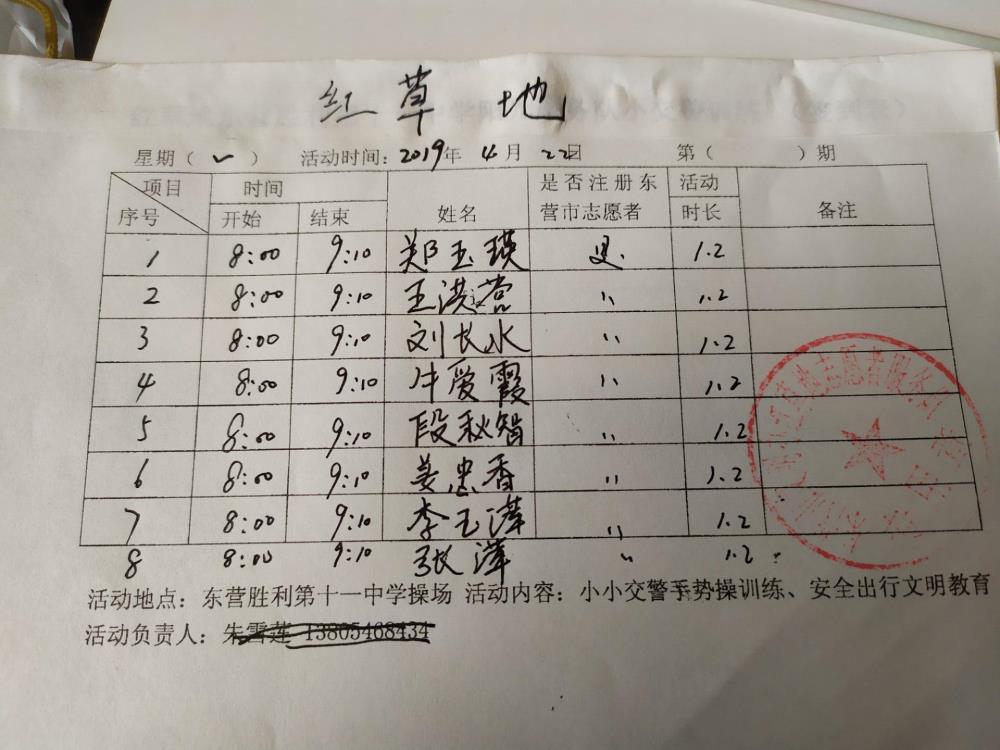 红草地
星期（一） 活动时间：2019年 4月 22日 第（ ）期
项目 时间 姓名 是否注册东营市志愿者 活动时长 备注
序号 开始 结束
1 8:00 9:10 郑玉瑛 是. 1.2
2 8:00 9:10 王洪营 〃 1.2
3 8:00 9:10 刘长水 〃 1.2
4 8:00 9:10 牛爱霞 〃 1.2
5 8:00 9:10 段秋智 〃 1.2
6 8:00 9:10 姜忠香 〃 1.2
7 8:00 9:10 李玉萍 〃 1.2
8 8:00 9:10 张萍 〃 1.2
活动地点：东营胜利第十一中学操场 活动内容：小小交警手势操训练、安全出行文明教育
活动负责人：